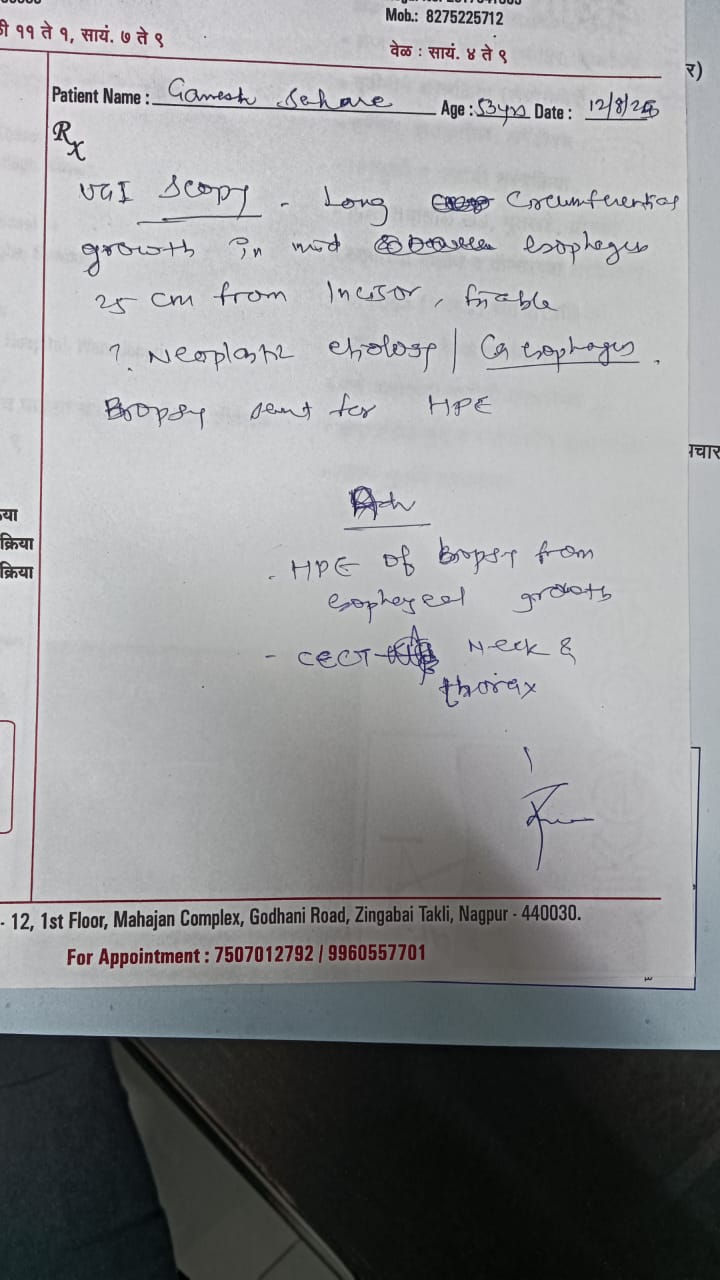 Mob.: 8275225712
११ ते १, सायं. ७ ते ९
वेळ : सायं. ४ ते ९
र)
Patient Name : Ganesh Sahare Age : 53yrs Date : 12/8/25
Rx
UGI Scopy - Long Circumferential
growth in mid esophagus
25 cm from Incisor, friable
?. Neoplastic etiology / Ca esophagus.
Biopsy sent for HPE
पचार
क्रिया
क्रिया
Adv
- HPE of Biopsy from
esophageal growth
- CECT Neck &
thorax
- 12, 1st Floor, Mahajan Complex, Godhani Road, Zingabai Takli, Nagpur - 440030.
For Appointment : 7507012792 / 9960557701